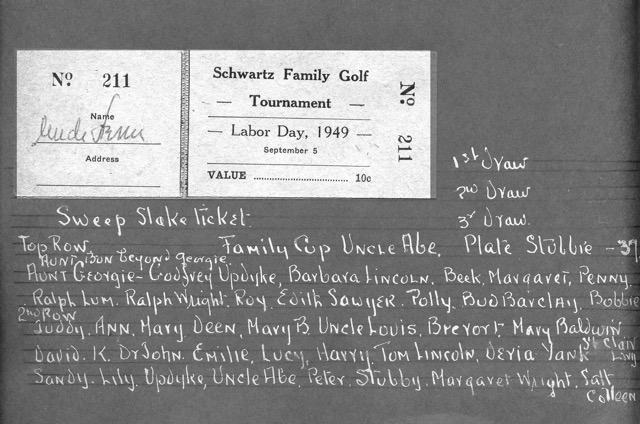 No 211
Name
Uncle
Address
Schwartz Family Golf
— Tournament —
— Labor Day, 1949 —
September 5
VALUE .......................... 10c
No 211
1st Draw
2nd Draw
3rd Draw.
Sweep Stake Ticket.
Top Row. Family Cup Uncle Abe, Plate Stubbie - 39
Aunt Bun beyond Georgie.
Aunt Georgie- Godfrey Updyke, Barbara Lincoln, Beek, Margaret, Penny.
Ralph Lum. Ralph Wright. Roy. Edith Sawyer. Polly. Bud Barclay. Bobbie
2nd Row
Juddy. Ann. Mary. Deen, Mary B. Uncle Louis, Brevort. Mary Baldwin
David. K. Dr John. Emilie, Lucy, Harry, Tom Lincoln, Deria Yank St Clair
Livy
Sandy. Lily. Updyke, Uncle Abe, Peter. Stubby. Margaret Wright. Salt
Colleen